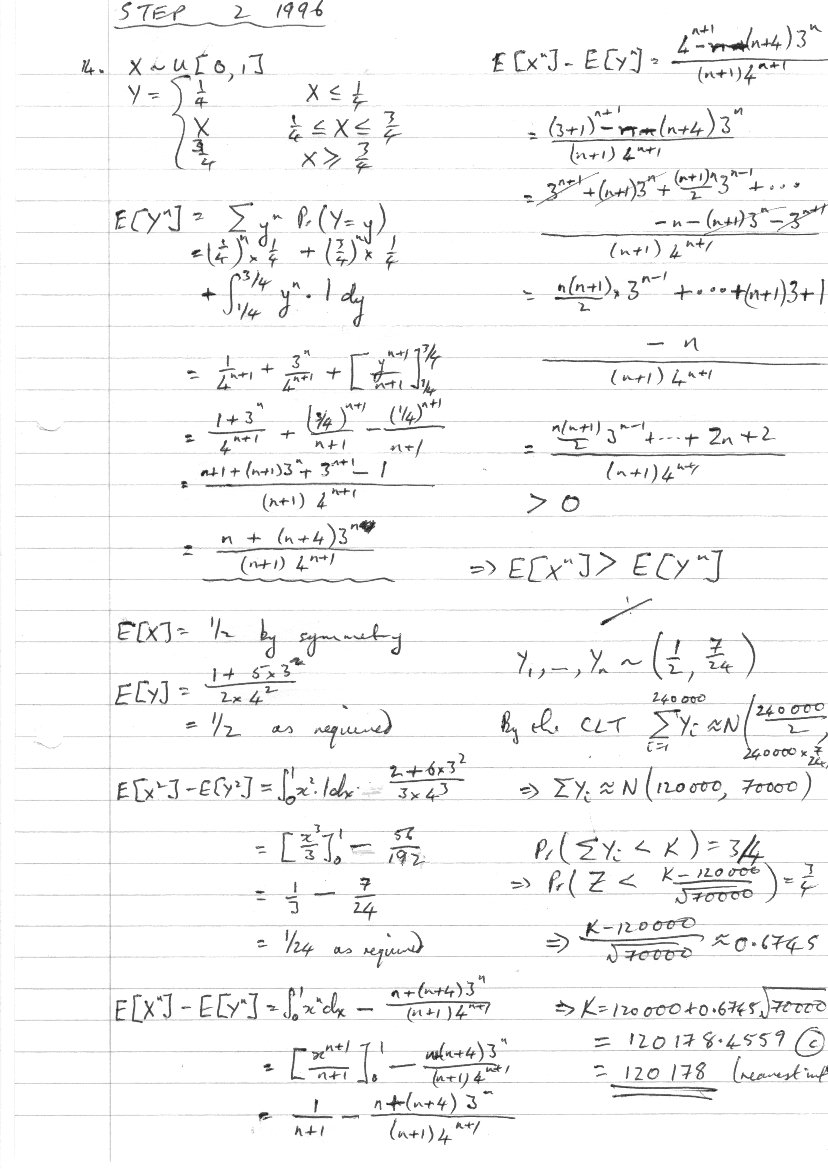 STEP 2 1996
14. X ~ U[0,1]
Y = { 1/4 X ≤ 1/4
X 1/4 ≤ X ≤ 3/4
3/4 X ≥ 3/4
E[Y^n] = Σ y^n Pr(Y=y)
= (1/4)^n × 1/4 + (3/4)^n × 1/4
+ ∫_{1/4}^{3/4} y^n · 1 dy
= 1/4^{n+1} + 3^n/4^{n+1} + [y^{n+1}/n+1]_{1/4}^{3/4}
= (1+3^n)/4^{n+1} + (3/4)^{n+1}/n+1 - (1/4)^{n+1}/n+1
= (n+1 + (n+1)3^n + 3^{n+1} - 1)/((n+1) 4^{n+1})
= (n + (n+4)3^n)/((n+1) 4^{n+1})
E[X] = 1/2 by symmetry
E[Y] = (1 + 5×3)/(2×4^2)
= 1/2 as required
E[X^2] - E[Y^2] = ∫_0^1 x^2 · 1 dx - (2+6×3^2)/(3×4^3)
= [x^3/3]_0^1 - 56/192
= 1/3 - 7/24
= 1/24 as required
E[X^n] - E[Y^n] = ∫_0^1 x^n dx - (n+(n+4)3^n)/((n+1)4^{n+1})
= [x^{n+1}/n+1]_0^1 - (n+(n+4)3^n)/((n+1)4^{n+1})
= 1/(n+1) - (n+(n+4)3^n)/((n+1)4^{n+1})
E[X^n] - E[Y^n] = (4^{n+1} - n - (n+4)3^n)/((n+1)4^{n+1})
= ((3+1)^{n+1} - n - (n+4)3^n)/((n+1)4^{n+1})
= 3^{n+1} + (n+1)3^n + (n+1)n/2 3^{n-1} + ...
- n - (n+1)3^n - 3^{n+1}
(n+1) 4^{n+1}
= n(n+1)/2 × 3^{n-1} + ... + (n+1)3 + 1
- n
(n+1) 4^{n+1}
= (n(n+1)/2 3^{n-1} + ... + 2n + 2)/((n+1)4^{n+1})
> 0
⇒ E[X^n] > E[Y^n]
Y_1, –, Y_n ~ (1/2, 7/24)
By the CLT Σ_{i=1}^{240000} Y_i ≈ N(240000/2,
240000 × 7/24
⇒ ΣY_i ≈ N(120000, 70000)
Pr(ΣY_i < K) = 3/4
⇒ Pr(Z < (K-120000)/√70000) = 3/4
⇒ (K-120000)/√70000 ≈ 0.6745
⇒ K = 120000 + 0.6745√70000
= 120178.4559 (c)
= 120178 (nearest int